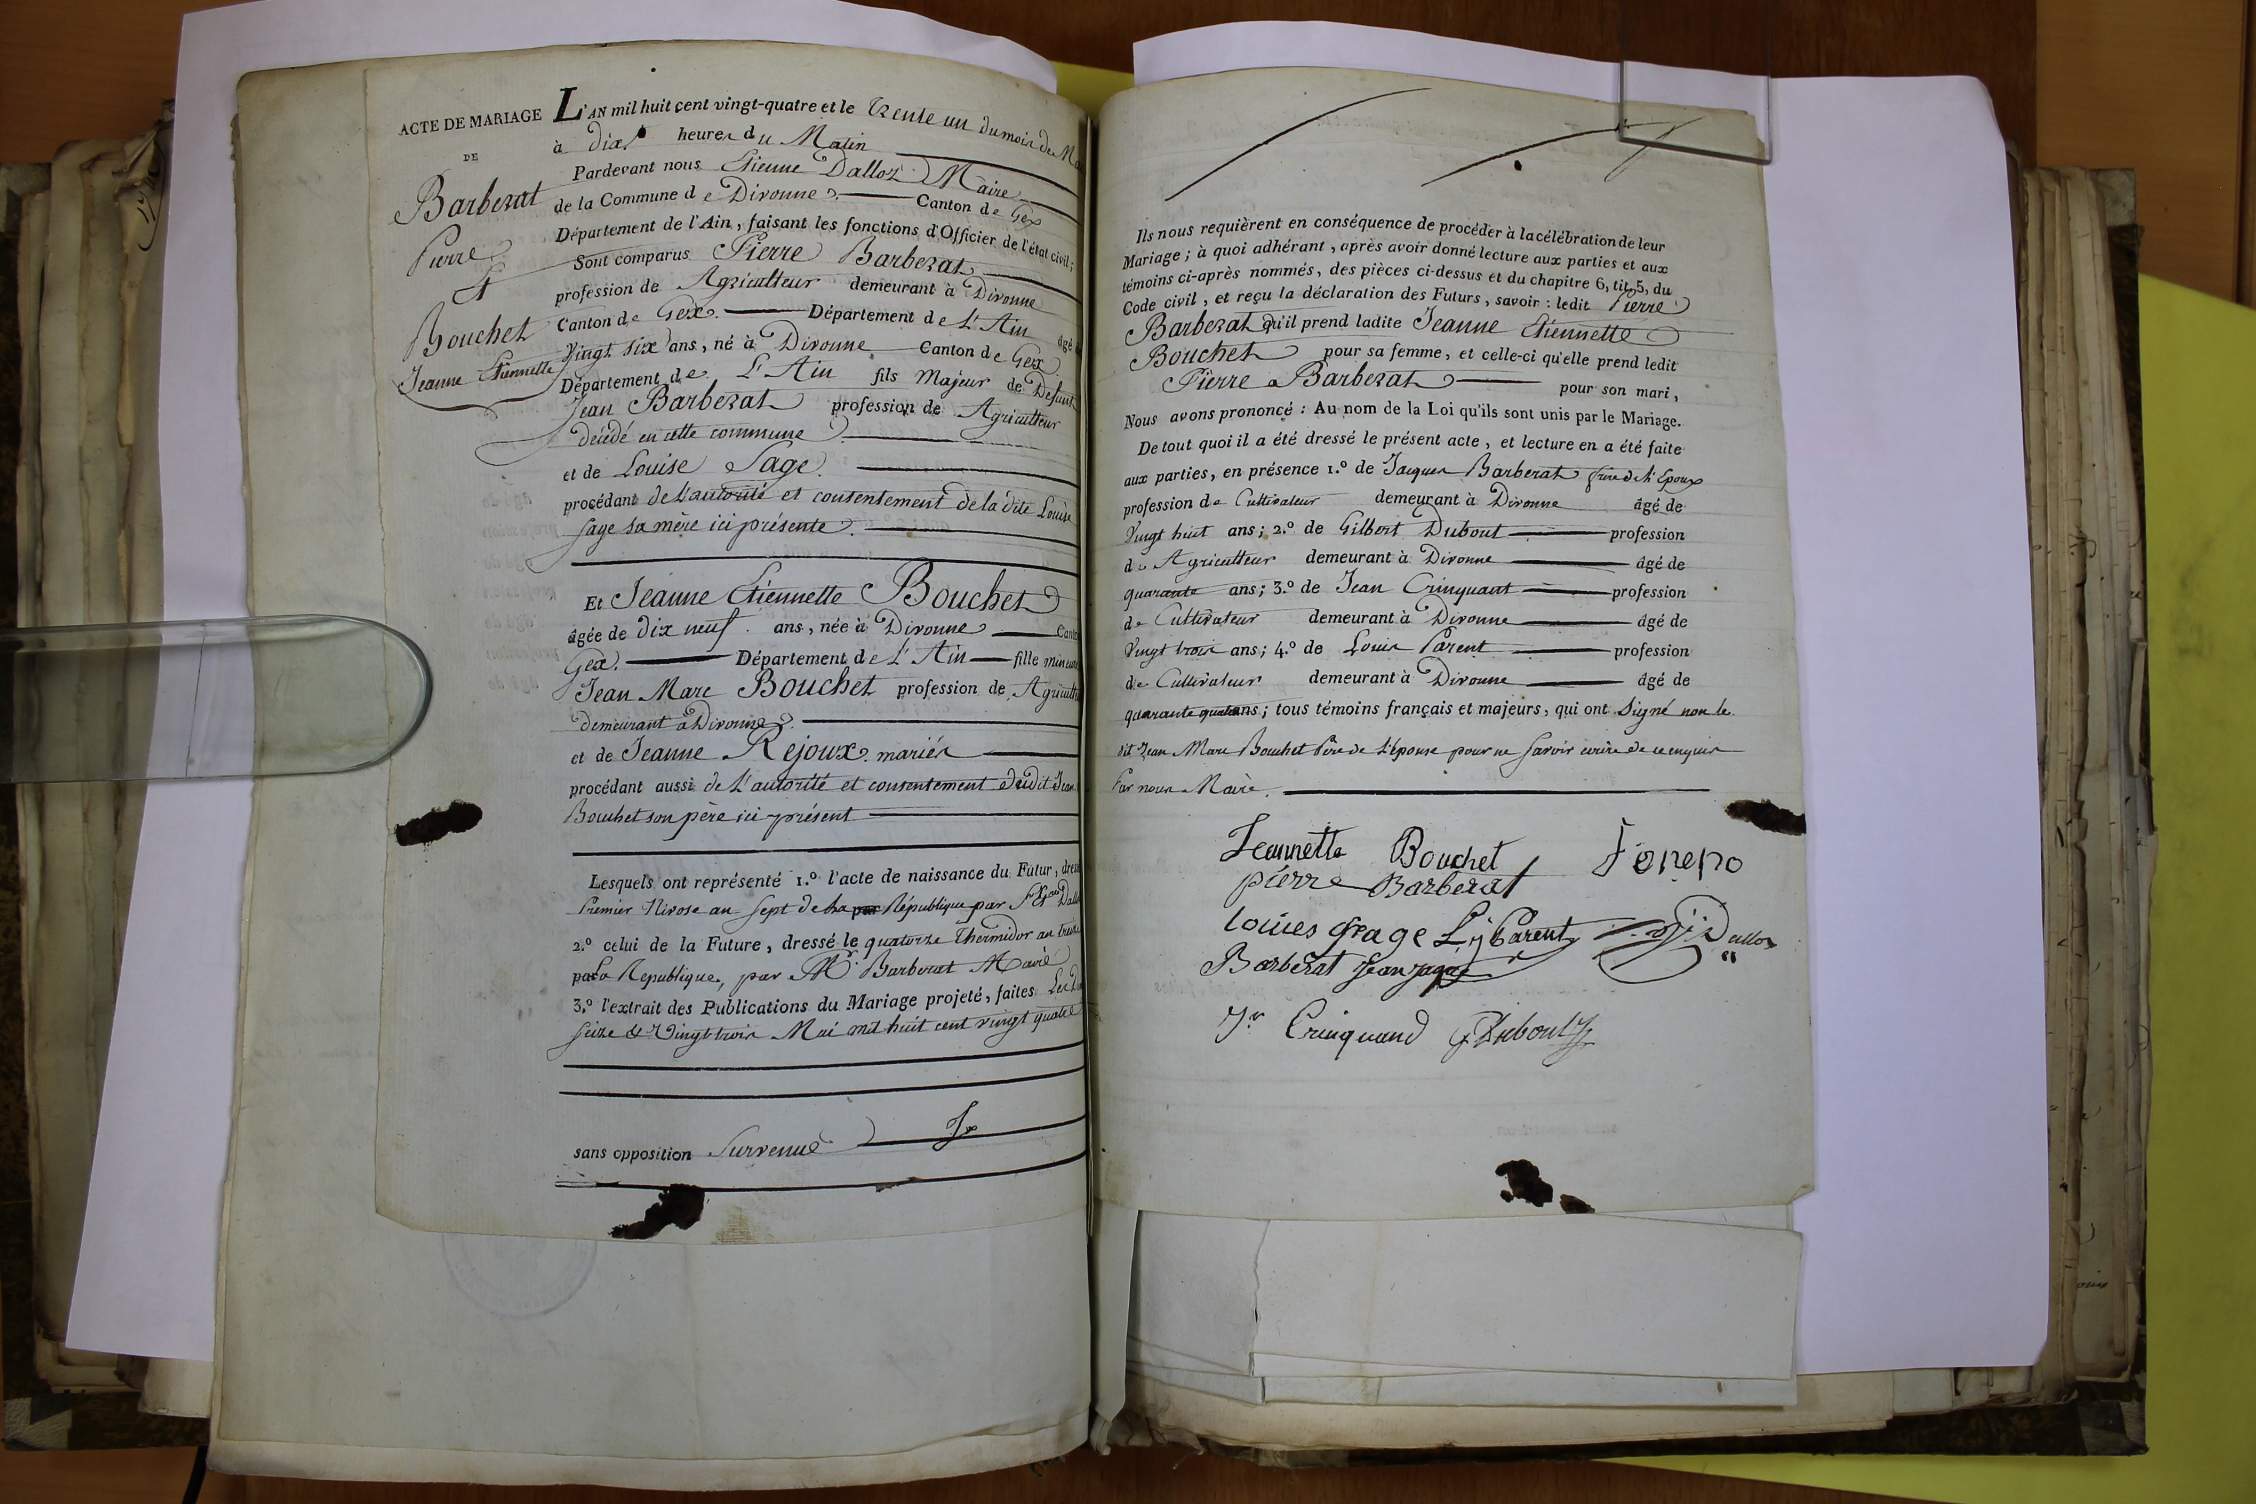 ACTE DE MARIAGE
DE
Barberat
Pierre
Et
Bouchet
Jeanne Etiennette
L'AN mil huit cent vingt-quatre et le Trente un du mois de
à Dix heures du Matin
Pardevant nous Etienne Dalloz Maire
de la Commune de Divonne Canton de Gex
Département de l'Ain, faisant les fonctions d'Officier de l'état civil;
Sont comparus Pierre Barberat
profession de Agriculteur demeurant à Divonne
Canton de Gex. Département de L'Ain âgé
Vingt six ans, né à Divonne Canton de Gex
Département de L'Ain fils Majeur de Defunt
Jean Barberat profession de Agriculteur
décédé en cette commune
et de Louise Sage.
procédant de L'autorité et consentement de la dite Louise
Sage sa mère ici présente.
Et Jeanne Etiennette Bouchet
âgée de dix neuf ans, née à Divonne Canton
Gex. Département de L'Ain fille mineure
Jean Marc Bouchet profession de
demeurant à Divonne.
et de Jeanne Rejoux. mariés
procédant aussi de L'autorité et consentement dudit Jean
Bouchet son père ici présent
Lesquels ont représenté 1.º l'acte de naissance du Futur,
Premier Nivose an Sept de la République par
2.º celui de la Future, dressé le quatorze Thermidor an
la Republique, par Mr. Barberat Maire
3.º l'extrait des Publications du Mariage projeté, faites Les
seize & Vingt trois Mai mil huit cent vingt quatre
sans opposition Survenue
Ils nous requièrent en conséquence de procéder à la célébration de leur
Mariage; à quoi adhérant, après avoir donné lecture aux parties et aux
témoins ci-après nommés, des pièces ci-dessus et du chapitre 6, tit. 5, du
Code civil, et reçu la déclaration des Futurs, savoir: ledit Pierre
Barberat qu'il prend ladite Jeanne Etiennette
Bouchet pour sa femme, et celle-ci qu'elle prend ledit
Pierre Barberat pour son mari,
Nous avons prononcé: Au nom de la Loi qu'ils sont unis par le Mariage.
De tout quoi il a été dressé le présent acte, et lecture en a été faite
aux parties, en présence 1.º de Jacques Barberat frère de l'Epoux
profession de Cultivateur demeurant à Divonne âgé de
Vingt huit ans; 2.º de Gilbert Dubout profession
de Agriculteur demeurant à Divonne âgé de
quarante ans; 3.º de Jean Crinquant profession
de Cultivateur demeurant à Divonne âgé de
Vingt trois ans; 4.º de Louis Parent profession
de Cultivateur demeurant à Divonne âgé de
quarante quatre ans; tous témoins français et majeurs, qui ont Signé non le
dit Jean Marc Bouchet Père de L'épouse pour ne savoir écrire de ce enquis
Par nous Maire.
Jeannette Bouchet
pierre Barberat
Parent
Dalloz
Barberat Jean
Crinquand G. Dubout